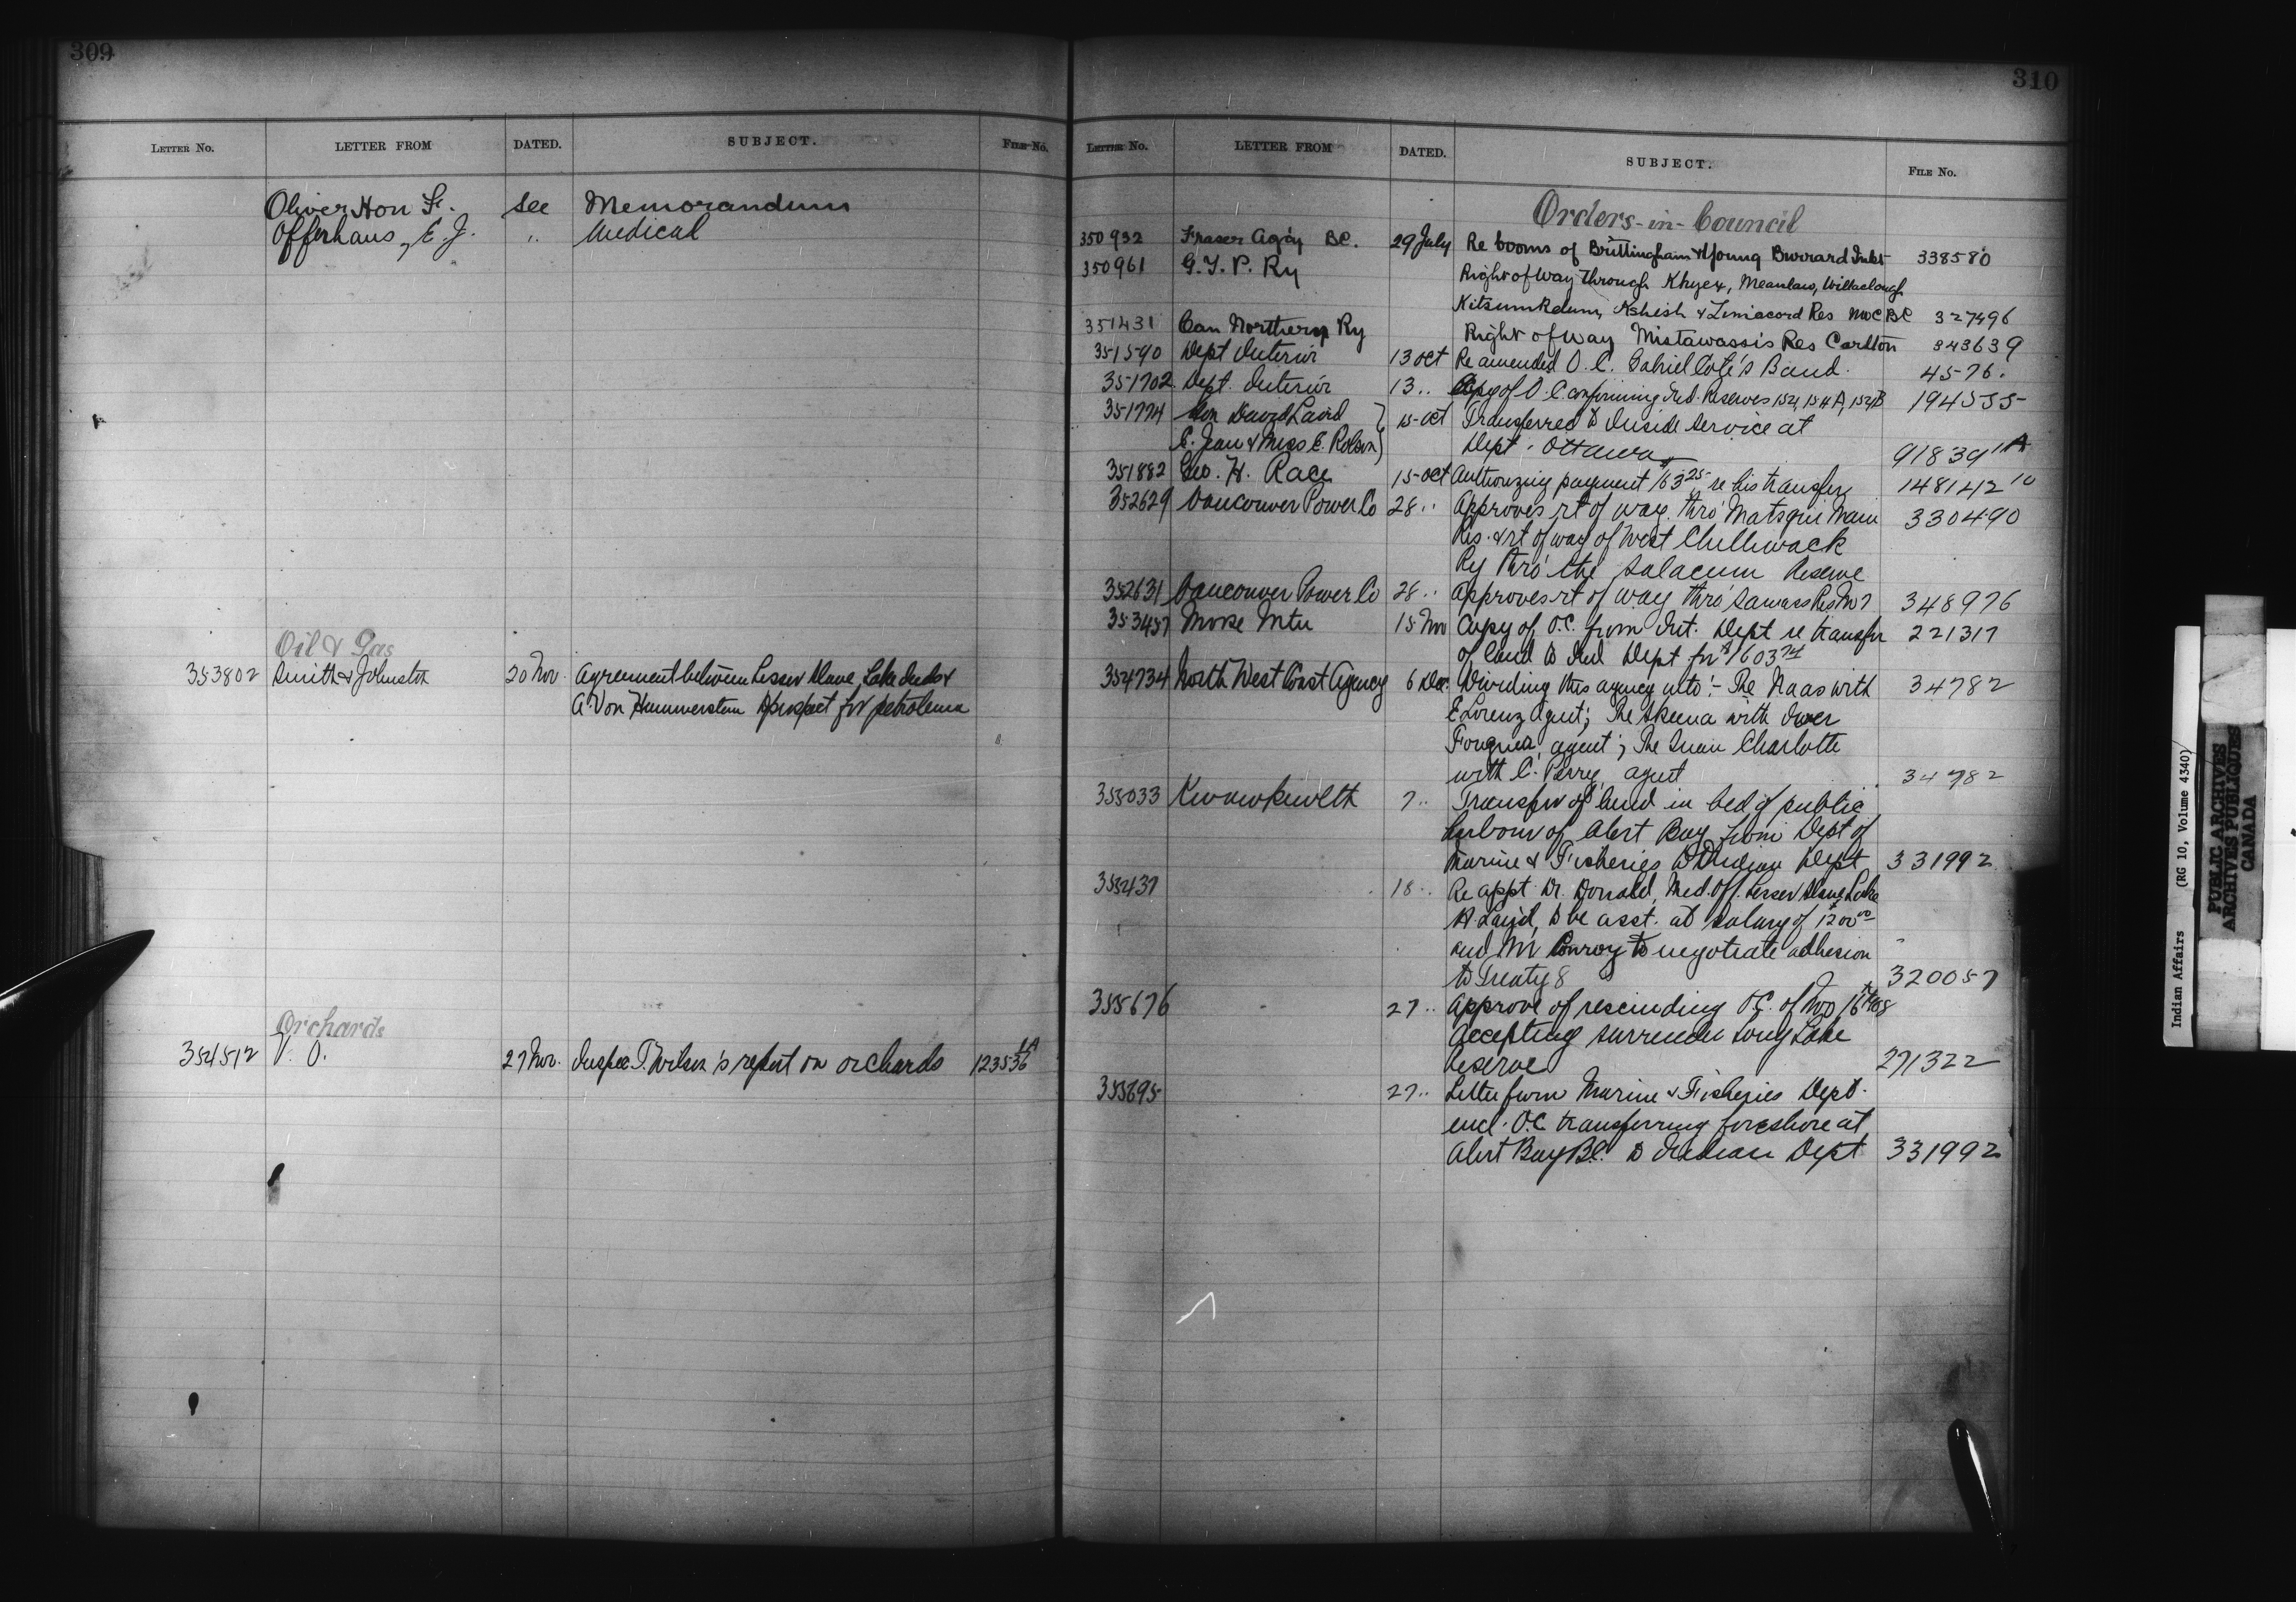 309
LETTER NO. LETTER FROM DATED. SUBJECT. FILE No.
Oliver Hon F. see Memorandum
Offerhaus, E. J. " Medical
Oil & Gas
353802 Smith & Johnston 20 Nov. Agreement between Lesser Slave Lake Inds &
A Von Hammerstein to prospect for petroleum
Orchards
354512 V. O. 27 Nov. Inspec T. Wilson's report on orchards 123536 1A
310
LETTER No. LETTER FROM DATED. SUBJECT. FILE No.
Orders-in-Council
350932 Fraser Ag'cy BC. 29 July Re booms of Brittingham & Young Burrard Inlet 338580
350961 G. T. P. Ry Right of Way through Khyex, Meanlaw, Wilkaclough
Kitsumkelum, Kshish & Zimacord Res NWC BC 327496
351431 Can Northern Ry Right of way Mistawassis Res Carlton 343639
351590 Dept Interior 13 Oct Re amended O. C. Gabriel Cote's Band. 4576.
351702 Dept. Interior 13 .. Copy of O. C. confirming Ind. Reserves 152, 154 A, 152 B 194535
351774 Hon David Laird } 15 Oct Transferred to Inside Service at
E. Jean & Miss E. Rolson } Dept. Ottawa 91839 1A
351882 Geo. H. Race 15 Oct Authorizing payment 163 25 re his transfer 148142 10
352629 Vancouver Power Co 28 .. Approves rt of way thro' Matsqui Main 330490
Res. & rt of way of West Chilliwack
Ry thro' the Salacum Reserve
352631 Vancouver Power Co 28 .. Approves rt of way thro' Sawass Res No 7 348976
353457 Moose Mtn 15 Nov Copy of O.C. from Int. Dept re transfer 221317
of land to Ind Dept for $1603 74
354734 North West Coast Agency 6 Dec. Dividing this agency into :- The Naas with 34782
E Lorenz Agent; The Skeena with Iver
Fougner, agent; The Queen Charlotte
with C. Perry agent 34782
355033 Kwawkewlth 7 .. Transfer of land in bed of public
harbour of Alert Bay from Dept of
Marine & Fisheries to Indian Dept 331992
355437 18 .. Re appt Dr. Donald, Med. Off. Lesser Slave Lake
H. Laird, to be asst. at salary of $1200 00
and Mr Conroy to negotiate adhesion
to Treaty 8 320057
355676 27 .. Approve of rescinding O.C. of Nov 16th 1908
Accepting surrender Long Lake
Reserve 271322
355695 27 .. Letter from Marine & Fisheries Dept.
encl. O.C. transferring foreshore at
Alert Bay B.C. to Indian Dept 331992
Indian Affairs (RG 10, Volume 4340)
PUBLIC ARCHIVES
ARCHIVES PUBLIQUES
CANADA